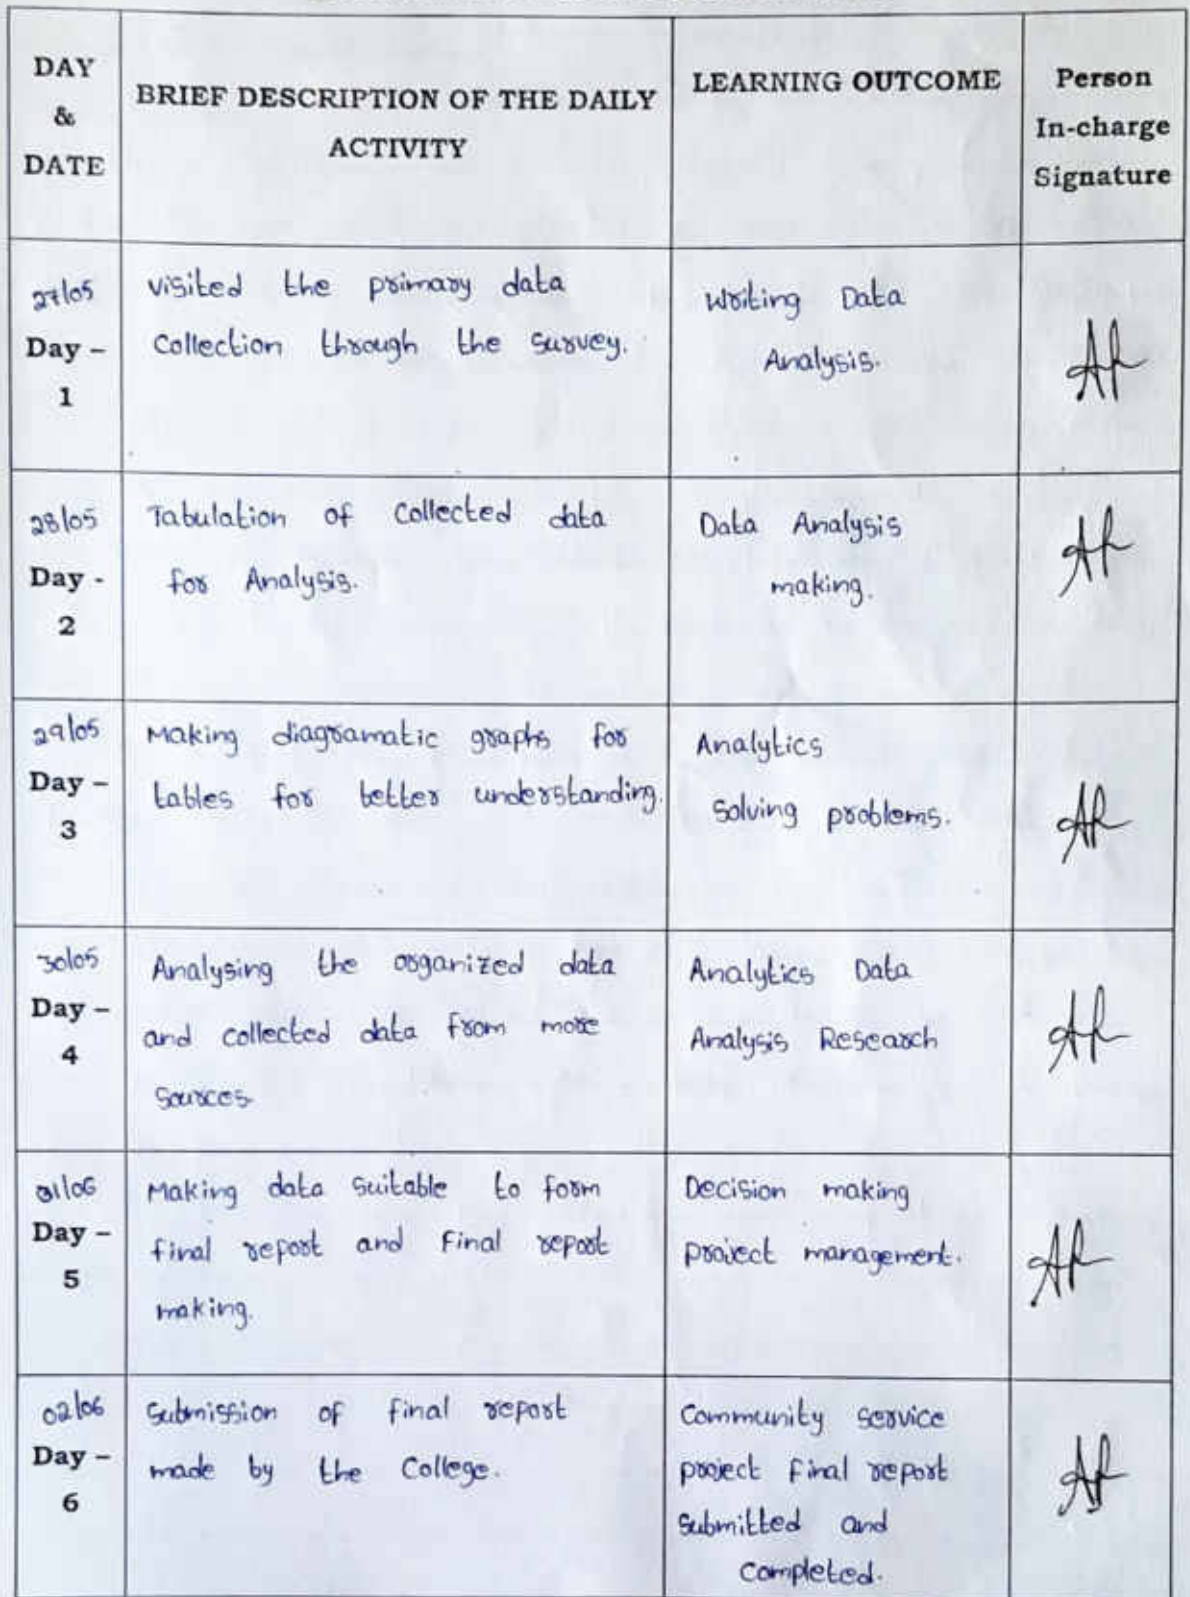 DAY
&
DATE
BRIEF DESCRIPTION OF THE DAILY
ACTIVITY
LEARNING OUTCOME
Person
In-charge
Signature
27/05
Day –
1
visited the primary data
collection through the survey.
Writing Data
Analysis.
28/05
Day -
2
Tabulation of collected data
for Analysis.
Data Analysis
making.
29/05
Day –
3
Making diagramatic graphs for
tables for better understanding.
Analytics
Solving problems.
30/05
Day –
4
Analysing the organized data
and collected data from more
Sources.
Analytics Data
Analysis Research
01/06
Day –
5
Making data suitable to form
final report and Final report
making.
Decision making
project management.
02/06
Day –
6
Submission of final report
made by the College.
Community service
project Final report
Submitted and
Completed.